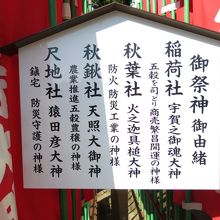 御祭神 御由緒
稲荷社 宇賀之御魂大神
五穀を司どり商売繁昌開運の神様
秋葉社 火之迦具槌大神
防火防災工業の神様
秋鍬社 天照大御神
農業推進五穀豊穣の神様
尺地社 猿田彦大神
鎮宅 防災守護の神様